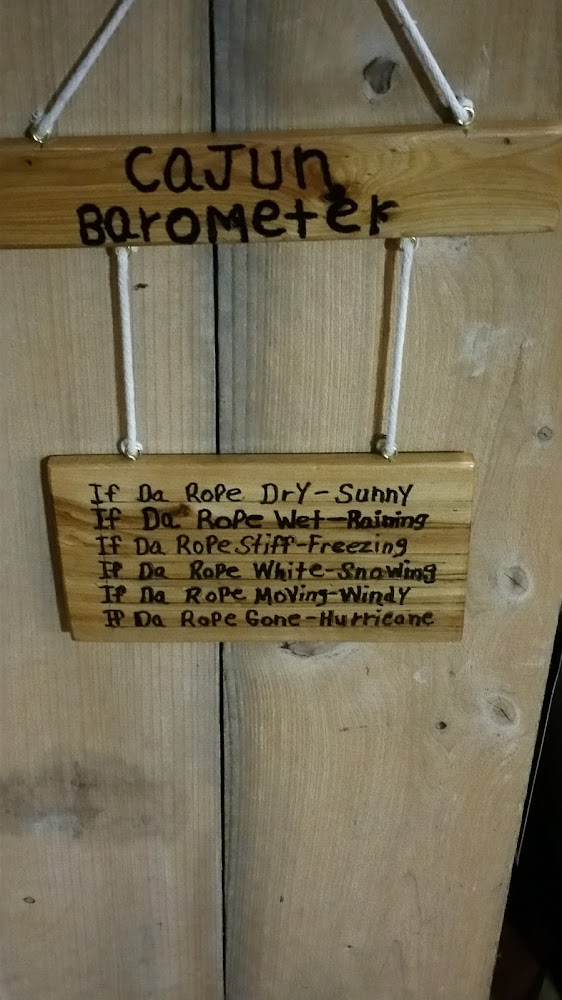 Cajun
Barometer
If Da Rope Dry-Sunny
If Da Rope Wet-Raining
If Da Rope Stiff-Freezing
If Da Rope White-Snowing
If Da Rope Moving-Windy
If Da Rope Gone-Hurricane